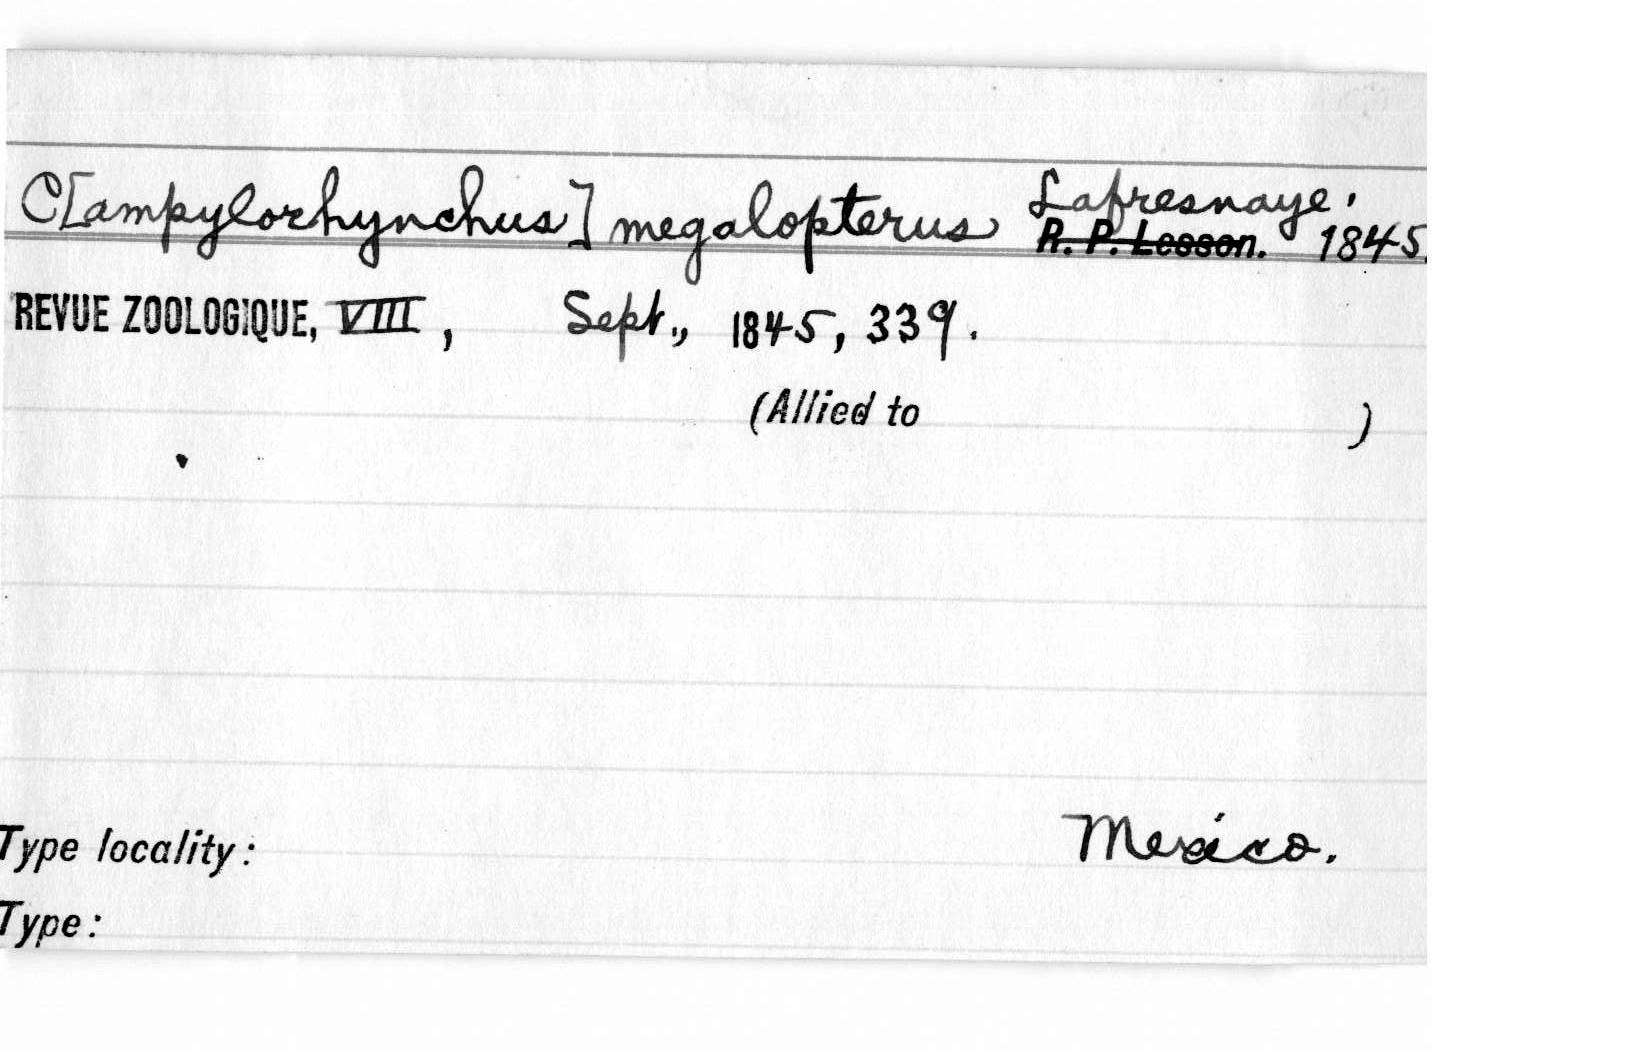 C[ampylorhynchus] megalopterus Lafresnaye.
R. P. Lesson. 1845.
REVUE ZOOLOGIQUE, VIII, Sept., 1845, 339.
(Allied to )
Type locality: Mexico.
Type: